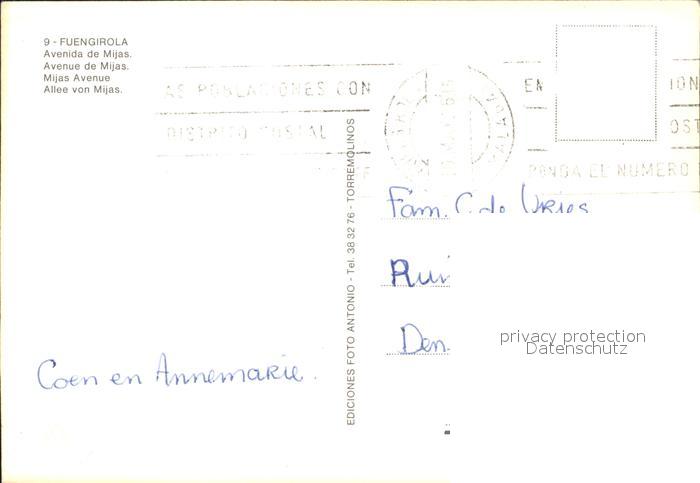 9 - FUENGIROLA
Avenida de Mijas.
Avenue de Mijas.
Mijas Avenue
Allee von Mijas.
AS POBLACIONES CON
DISTRITO POSTAL
EN
ION
OST
PONGA EL NUMERO
EDICIONES FOTO ANTONIO - Tel. 38 32 76 - TORREMOLINOS
Fam. C. de Vries
Rui
Den
privacy protection
Datenschutz
Coen en Annemarie.